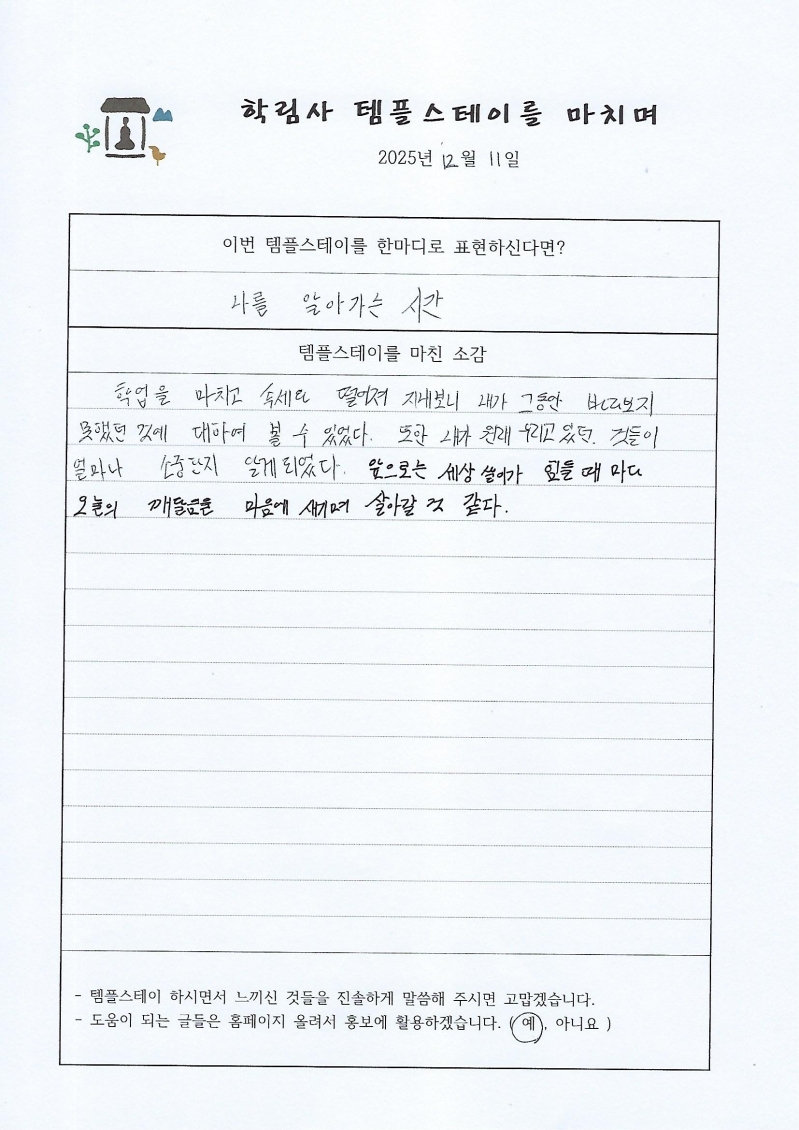 학림사 템플스테이를 마치며
2025년 12월 11일
이번 템플스테이를 한마디로 표현하신다면?
나를 알아가는 시간
템플스테이를 마친 소감
학업을 마치고 속세와 떨어져 지내보니 내가 그동안 바라보지
못했던 것에 대하여 볼 수 있었다. 또한 내가 원래 누리고 있던. 것들이
얼마나 소중한지 알게 되었다. 앞으로는 세상 살이가 힘들 때 마다
오늘의 깨달음을 마음에 새기며 살아갈 것 같다.
- 템플스테이 하시면서 느끼신 것들을 진솔하게 말씀해 주시면 고맙겠습니다.
- 도움이 되는 글들은 홈페이지 올려서 홍보에 활용하겠습니다. ( 예 , 아니요 )